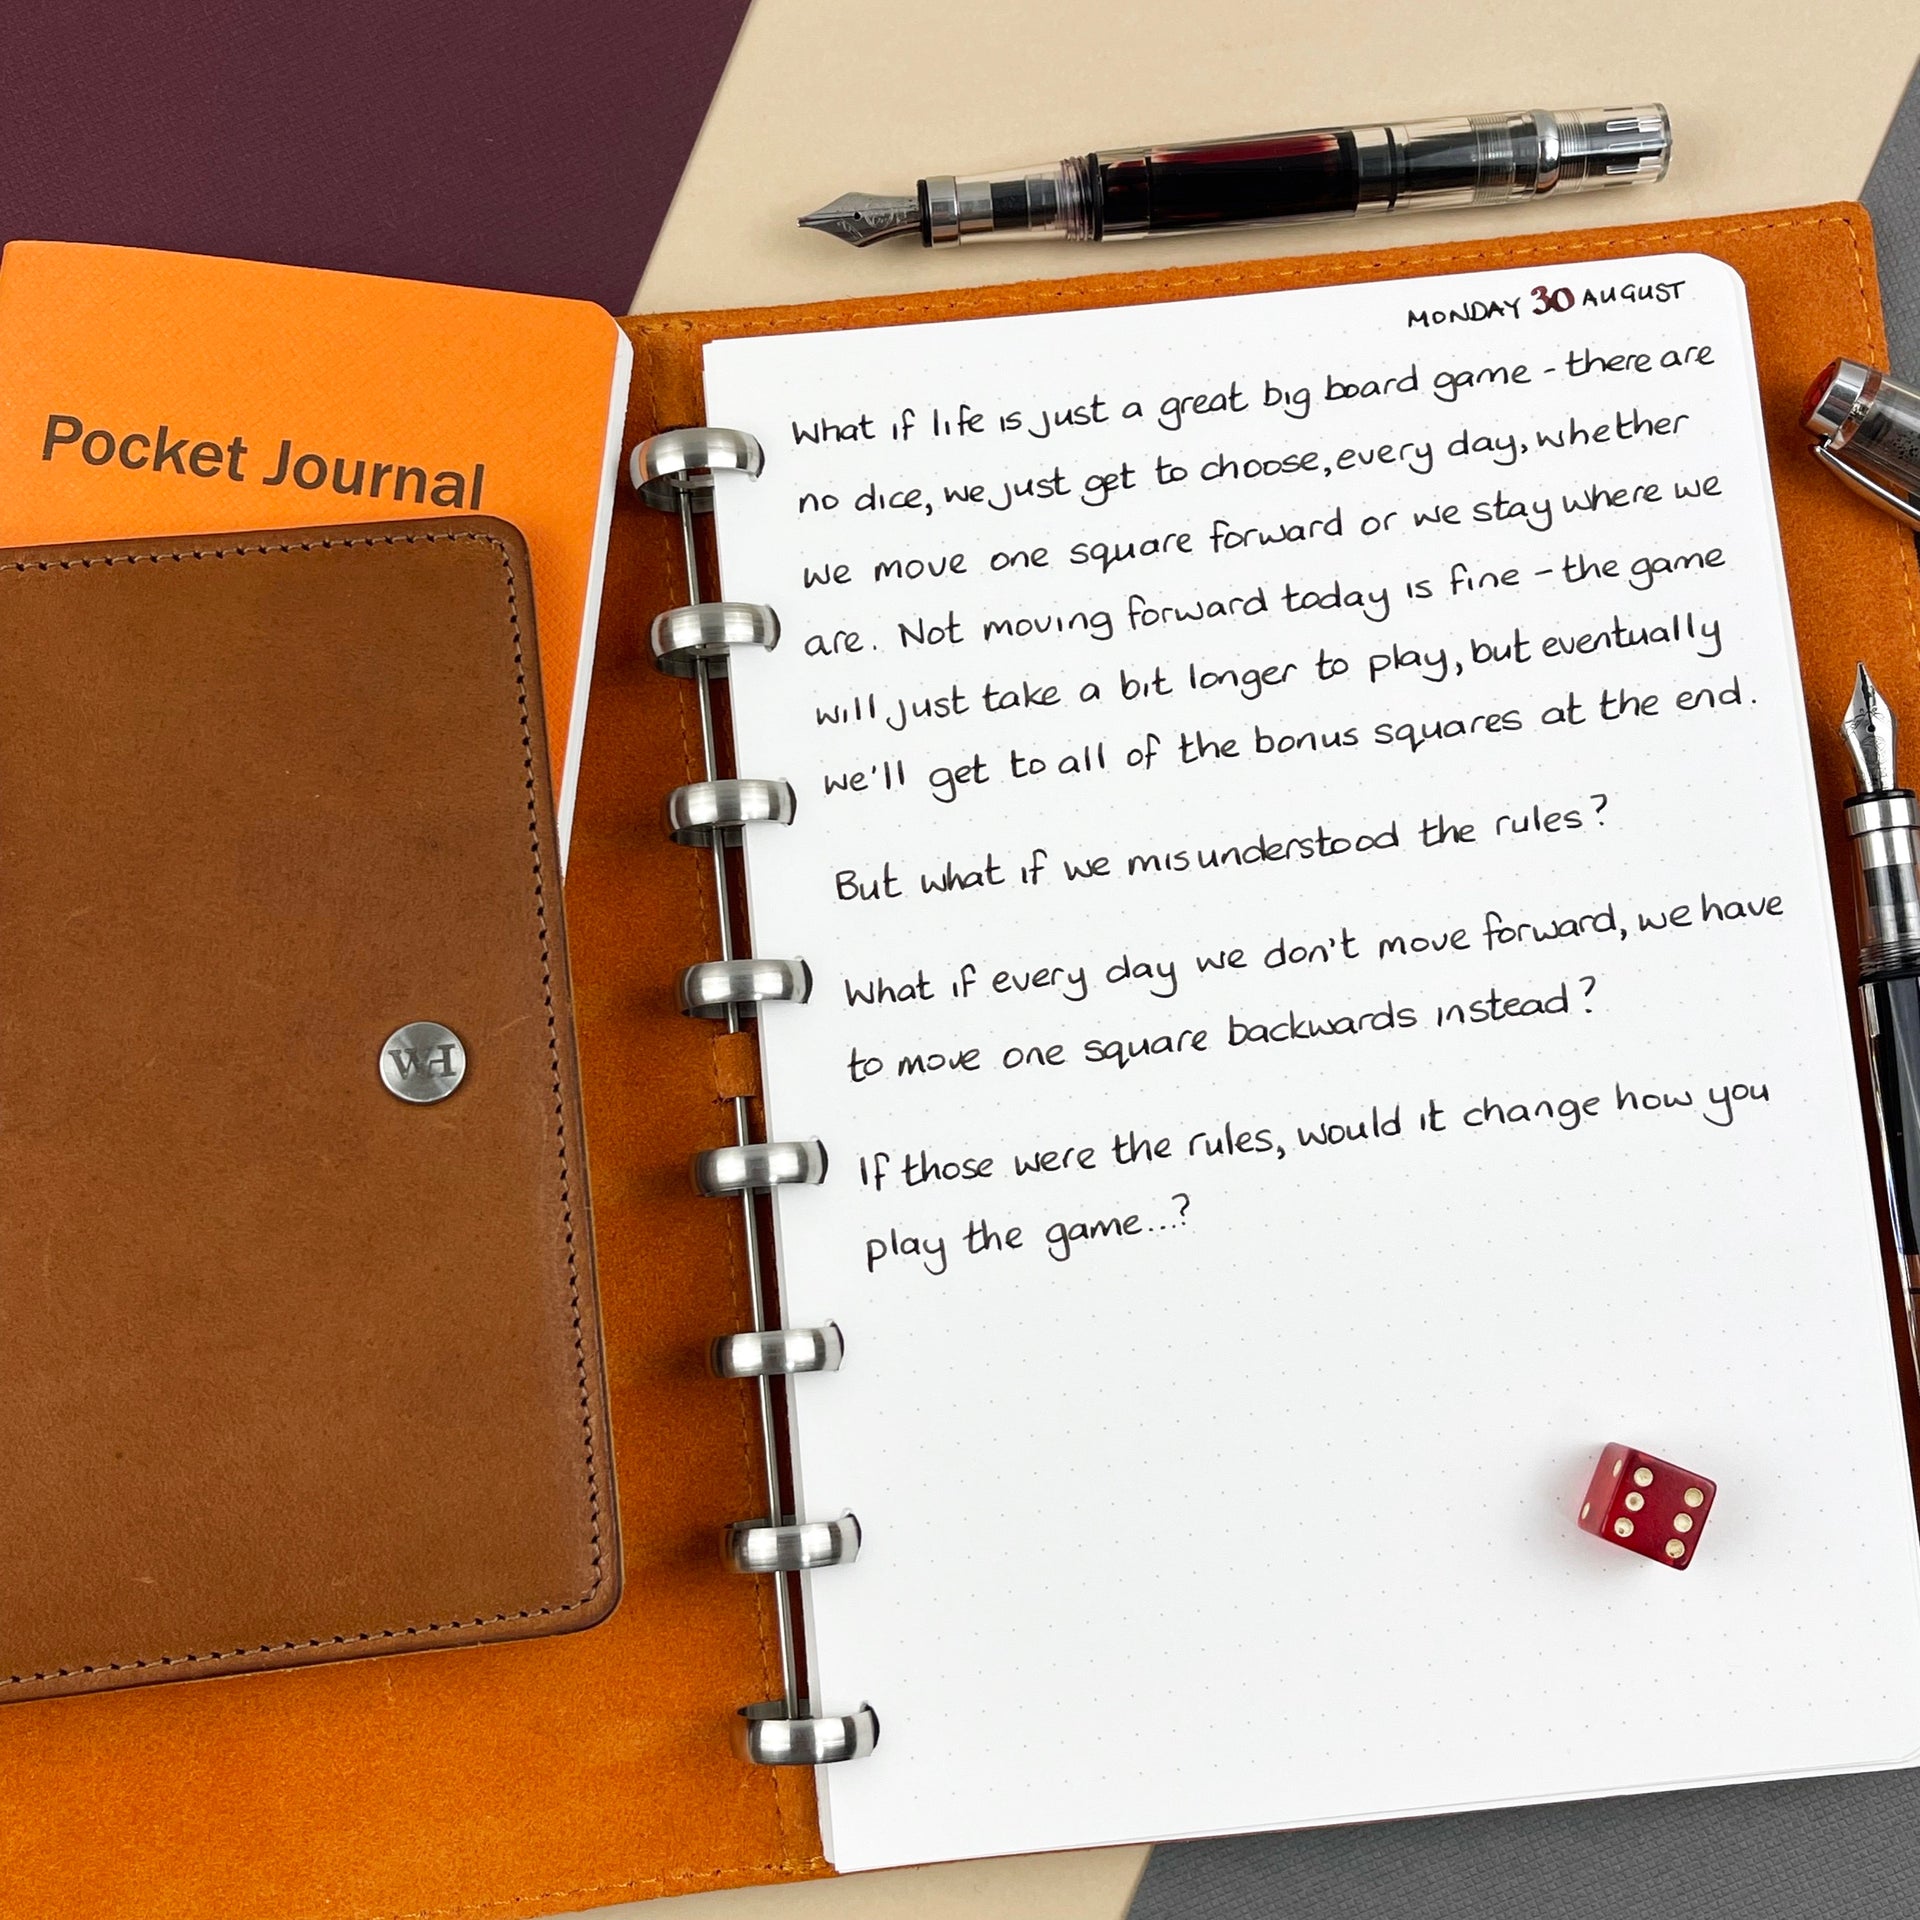 Pocket Journal
WH
MONDAY 30 AUGUST
What if life is just a great big board game - there are
no dice, we just get to choose, every day, whether
we move one square forward or we stay where we
are. Not moving forward today is fine - the game
will just take a bit longer to play, but eventually
we'll get to all of the bonus squares at the end.
But what if we misunderstood the rules?
What if every day we don't move forward, we have
to move one square backwards instead?
If those were the rules, would it change how you
play the game...?